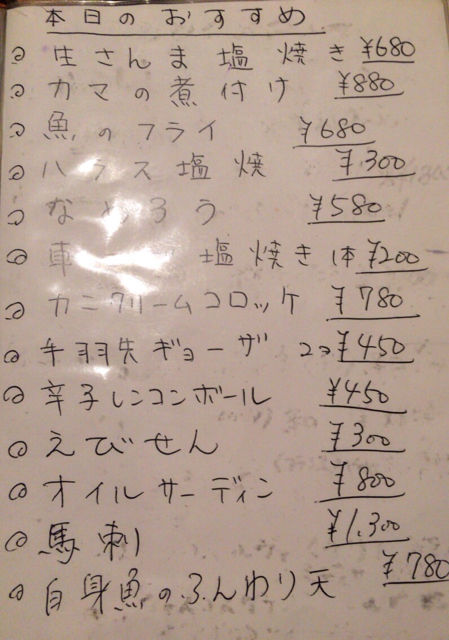 本日のおすすめ
生さんま塩焼き ¥680
カマの煮付け ¥880
魚のフライ ¥680
ハラス塩焼 ¥300
なめろう ¥580
車 塩焼き 1本 ¥200
カニクリームコロッケ ¥780
手羽先ギョーザ 2コ ¥450
辛子レンコンボール ¥450
えびせん ¥300
オイルサーディン ¥800
馬刺 ¥1,300
白身魚のふんわり天 ¥780